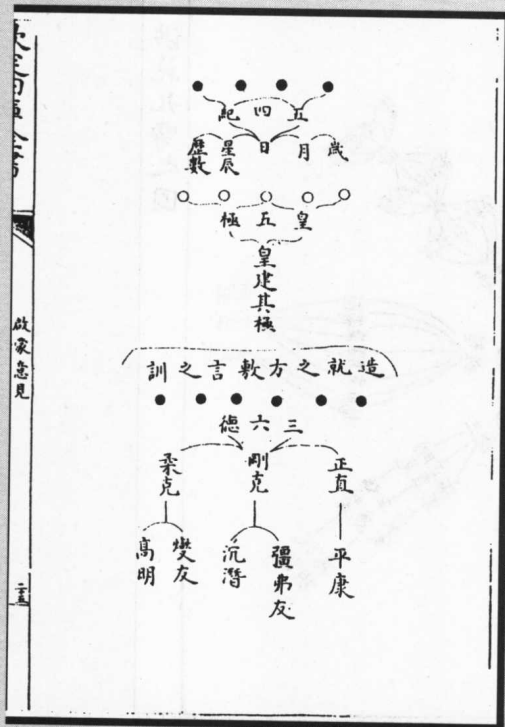 五四紀
歲
月
日
星辰
歷數
皇五極
皇建其極
造就之方敷言之訓
三六德
正直
剛克
柔克
平康
彊弗友
沉潛
燮友
高明
欽定四庫全書
啟蒙意見